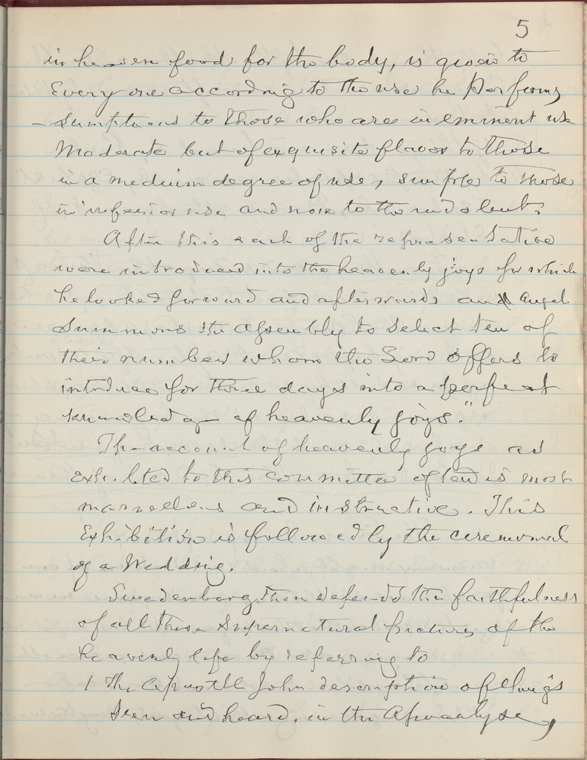 5
in heaven food for the body, is given to
Every one according to the use he performs
- Sumptuous to those who are in eminent use
Moderate but of exquisite flavor to those
in a medium degree of use, simple to those
in inferior use and none to the indolent.
After this each of the representative
were introduced into the heavenly joys for which
he looked forward and afterwards an Angel
Summons the assembly to select ten of
their number whom the Lord offers to
introduce for three days into a perfect
knowledge of heavenly joys."
The account of heavenly joys as
exhibited to this committee of ten is most
marvellous and instructive. This
Exhibition is followed by the ceremonial
of a Wedding.
Swedenborg then defends the faithfulness
of all these Supernatural pictures of the
heavenly life by referring to
1 The Apostle John description of things
seen and heard, in the Apocalypse,